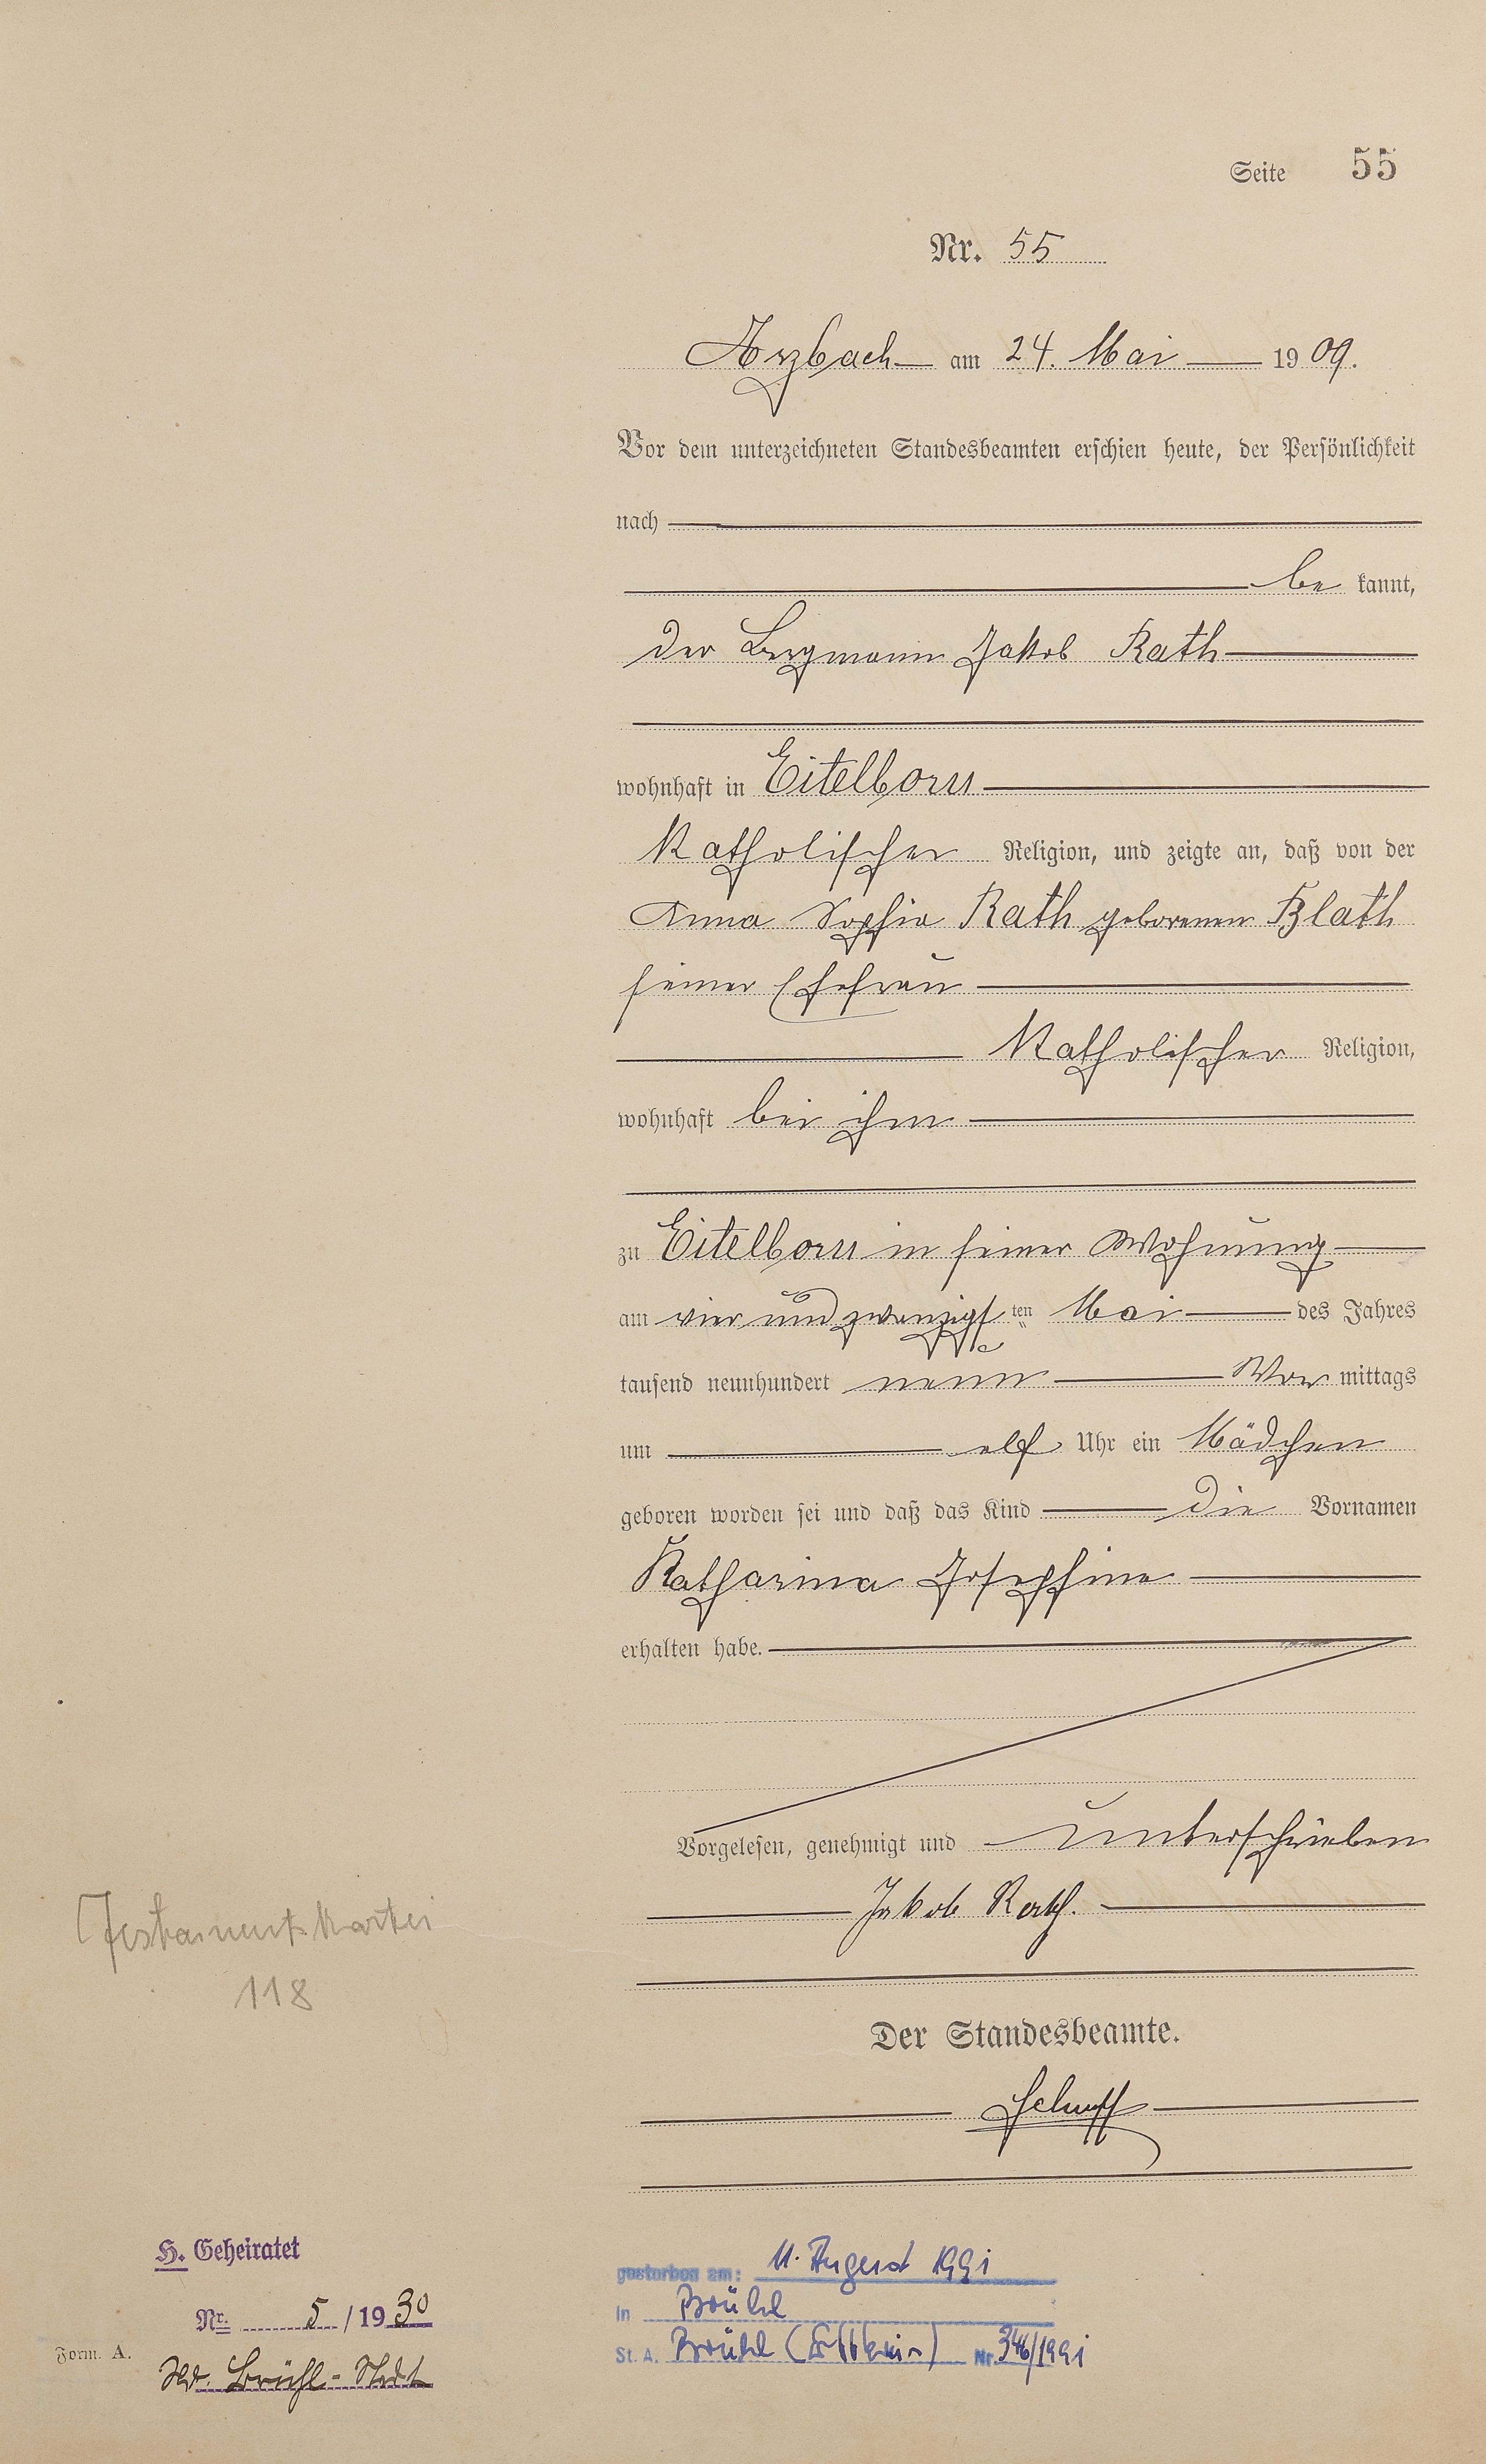 Seite 55
Nr. 55
Arzbach am 24. Mai 1909.
Vor dem unterzeichneten Standesbeamten erschien heute, der Persönlichkeit
nach
be kannt,
der Bergmann Jakob Rath
wohnhaft in Eitelborn
Katholischer Religion, und zeigte an, daß von der
Anna Sophia Rath geborenen Blath
seiner Ehefrau
Katholischer Religion,
wohnhaft bei ihm
zu Eitelborn in seiner Wohnung
am vier und zwanzigsten Mai des Jahres
tausend neunhundert neun Vor mittags
um elf Uhr ein Mädchen
geboren worden sei und daß das Kind die Vornamen
Katharina Josephine
erhalten habe.
Vorgelesen, genehmigt und unterschrieben
Jakob Rath.
Testamentskartei
118
Der Standesbeamte.
H. Geheiratet
Nr. 5/1930
Brühl-Stadt
Form. A.
gestorben am: 11. August 1991
in Brühl
St. A. Brühl (Erftkreis) Nr. 346/1991